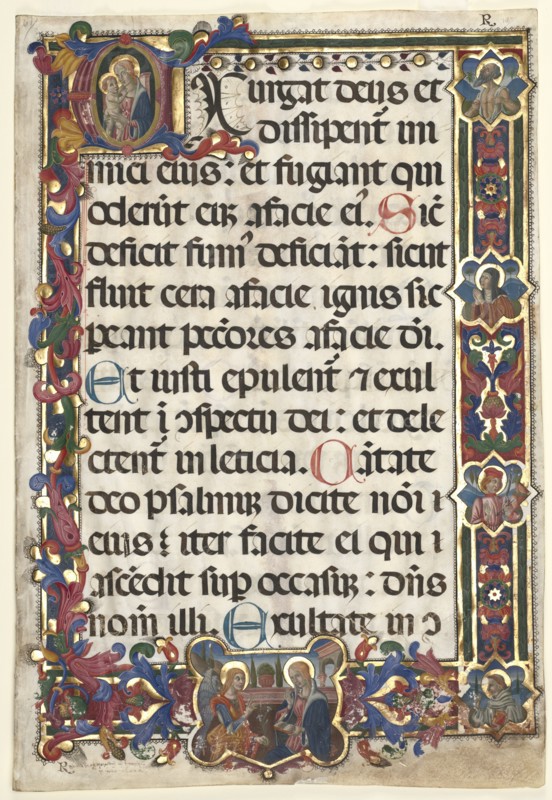 R
Exurgat deus et
dissipent̄ ini
mici eius: et fugiant qui
oderūt eū afacie ei᾽. Sic̄
deficit fum᾽ deficiāt: sicut
fluit cera afacie ignis sic
peant pecc̄ores afacie dī.
Et iusti epulent̄ ⁊ exul
tent ī ↄspectu dei: et dele
ctent̄ in leticia. Cātate
deo psalmuꝫ dicite nōi i
eius: iter facite ei qui i
ascēdit suꝑ occasuꝫ: dn̄s
nom̄ illi. Exultate in ↄ
R